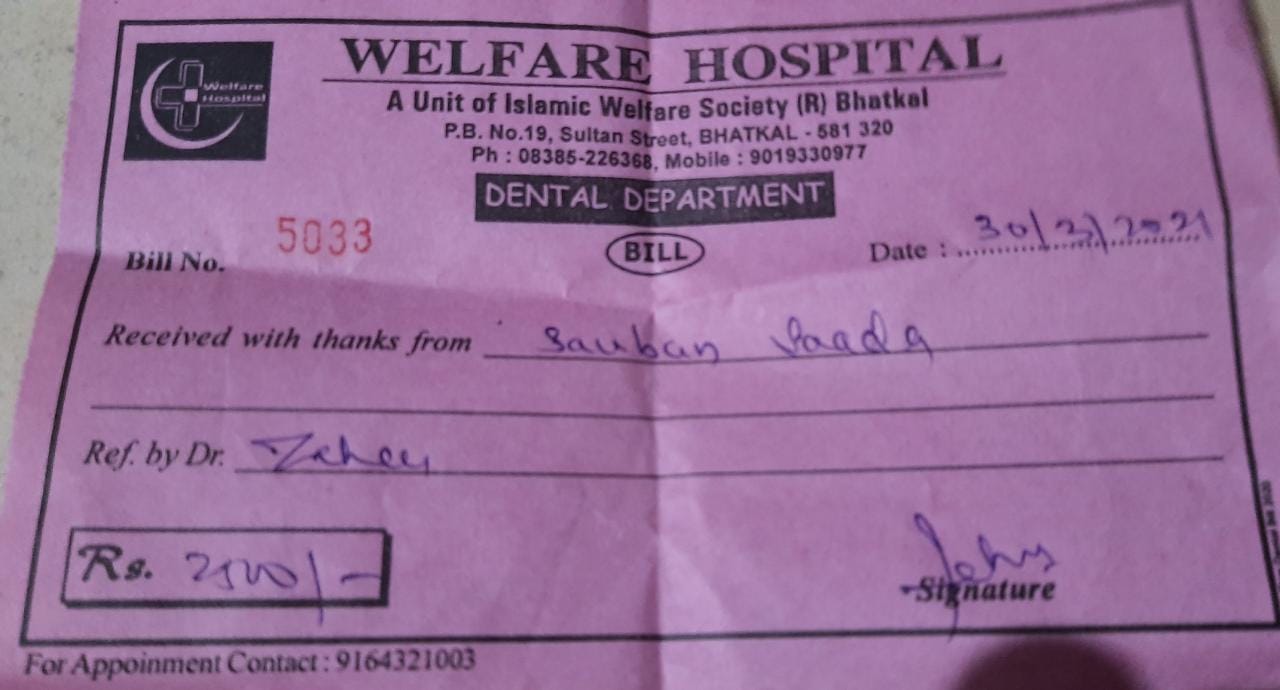 Welfare
Hospital
WELFARE HOSPITAL
A Unit of Islamic Welfare Society (R) Bhatkal
P.B. No.19, Sultan Street, BHATKAL - 581 320
Ph : 08385-226368, Mobile : 9019330977
DENTAL DEPARTMENT
Bill No. 5033
BILL
Date : 30/3/2021
Received with thanks from Sauban
Ref. by Dr.
Rs. 2500/-
Signature
For Appoinment Contact : 9164321003